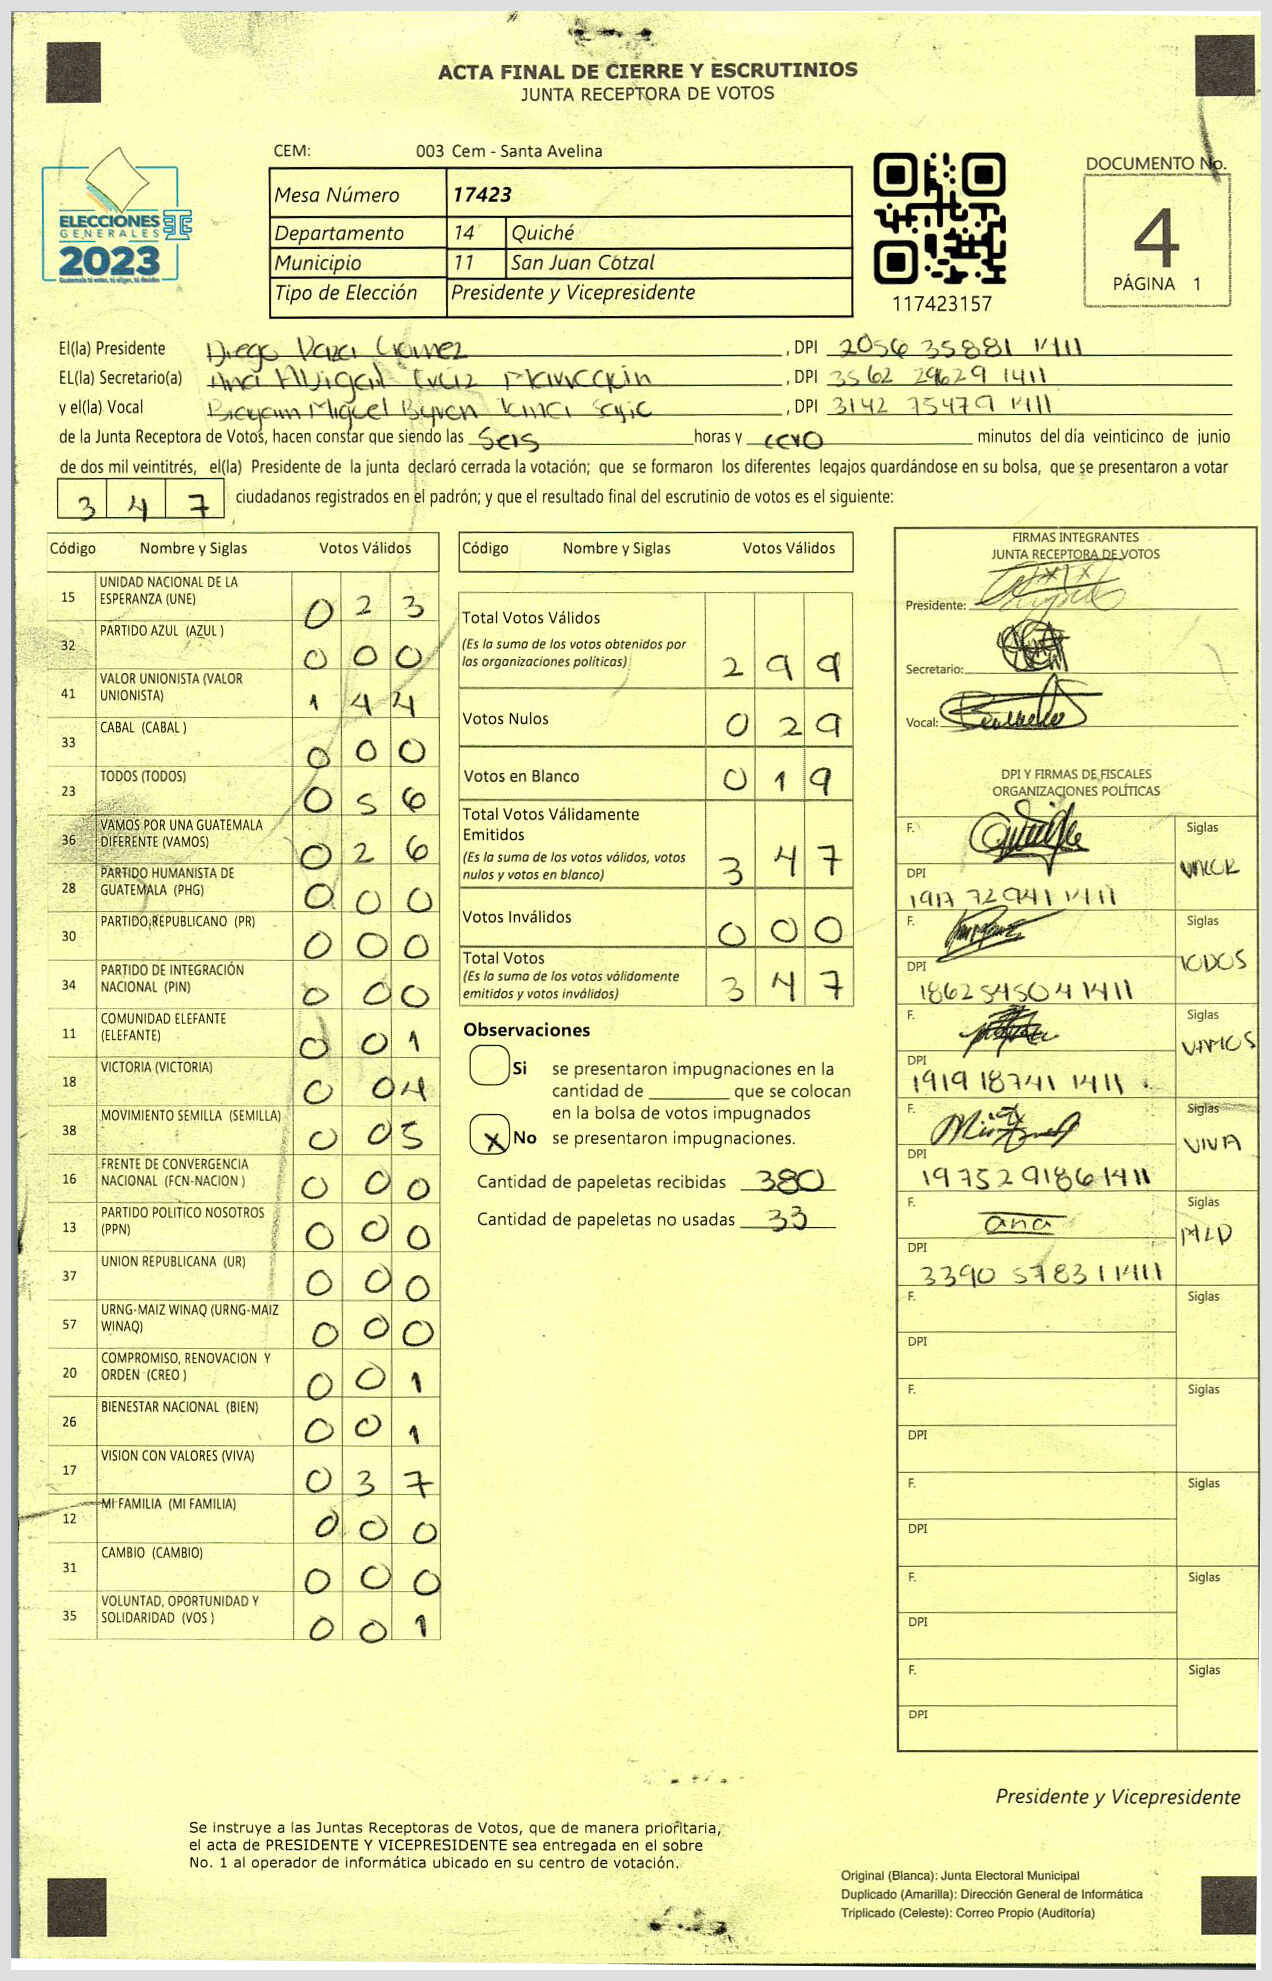 ACTA FINAL DE CIERRE Y ESCRUTINIOS
JUNTA RECEPTORA DE VOTOS
CEM: 003 Cem - Santa Avelina
DOCUMENTO No.
4
PÁGINA 1
ELECCIONES
GENERALES
2023
Mesa Número 17423
Departamento 14 Quiché
Municipio 11 San Juan Cotzal
Tipo de Elección Presidente y Vicepresidente
117423157
El(la) Presidente Diego , DPI 2056 35881 1411
EL(la) Secretario(a) Ana , DPI 3562 29629 1411
y el(la) Vocal Brayam Miguel Byron , DPI 3142 75479 1411
de la Junta Receptora de Votos, hacen constar que siendo las Seis horas y cero minutos del día veinticinco de junio
de dos mil veintitrés, el(la) Presidente de la junta declaró cerrada la votación; que se formaron los diferentes legajos quardándose en su bolsa, que se presentaron a votar
3 4 7 ciudadanos registrados en el padrón; y que el resultado final del escrutinio de votos es el siguiente:
Código Nombre y Siglas Votos Válidos
15 UNIDAD NACIONAL DE LA ESPERANZA (UNE) 0 2 3
32 PARTIDO AZUL (AZUL ) 0 0 0
41 VALOR UNIONISTA (VALOR UNIONISTA) 1 4 4
33 CABAL (CABAL ) 0 0 0
23 TODOS (TODOS) 0 5 6
36 VAMOS POR UNA GUATEMALA DIFERENTE (VAMOS) 0 2 6
28 PARTIDO HUMANISTA DE GUATEMALA (PHG) 0 0 0
30 PARTIDO REPUBLICANO (PR) 0 0 0
34 PARTIDO DE INTEGRACIÓN NACIONAL (PIN) 0 0 0
11 COMUNIDAD ELEFANTE (ELEFANTE) 0 0 1
18 VICTORIA (VICTORIA) 0 0 4
38 MOVIMIENTO SEMILLA (SEMILLA) 0 0 5
16 FRENTE DE CONVERGENCIA NACIONAL (FCN-NACION ) 0 0 0
13 PARTIDO POLITICO NOSOTROS (PPN) 0 0 0
37 UNION REPUBLICANA (UR) 0 0 0
57 URNG-MAIZ WINAQ (URNG-MAIZ WINAQ) 0 0 0
20 COMPROMISO, RENOVACION Y ORDEN (CREO ) 0 0 1
26 BIENESTAR NACIONAL (BIEN) 0 0 1
17 VISION CON VALORES (VIVA) 0 3 7
12 MI FAMILIA (MI FAMILIA) 0 0 0
31 CAMBIO (CAMBIO) 0 0 0
35 VOLUNTAD, OPORTUNIDAD Y SOLIDARIDAD (VOS ) 0 0 1
Código Nombre y Siglas Votos Válidos
Total Votos Válidos
(Es la suma de los votos obtenidos por
las organizaciones políticas) 2 9 9
Votos Nulos 0 2 9
Votos en Blanco 0 1 9
Total Votos Válidamente
Emitidos
(Es la suma de los votos válidos, votos
nulos y votos en blanco) 3 4 7
Votos Inválidos 0 0 0
Total Votos
(Es la suma de los votos válidamente
emitidos y votos inválidos) 3 4 7
Observaciones
Si se presentaron impugnaciones en la
cantidad de ________ que se colocan
en la bolsa de votos impugnados
X No se presentaron impugnaciones.
Cantidad de papeletas recibidas 380
Cantidad de papeletas no usadas 33
FIRMAS INTEGRANTES
JUNTA RECEPTORA DE VOTOS
Presidente:
Secretario:
Vocal:
DPI Y FIRMAS DE FISCALES
ORGANIZACIONES POLÍTICAS
F. Siglas
DPI VALOR
1917 72941 1411
F. Siglas
DPI TODOS
1862 54504 1411
F. Siglas
DPI VAMOS
1919 18741 1411
F. Siglas
DPI VIVA
1975 29186 1411
F. ana Siglas
DPI MLP
3390 57831 1411
F. Siglas
DPI
F. Siglas
DPI
F. Siglas
DPI
F. Siglas
DPI
F. Siglas
DPI
Presidente y Vicepresidente
Se instruye a las Juntas Receptoras de Votos, que de manera prioritaria,
el acta de PRESIDENTE Y VICEPRESIDENTE sea entregada en el sobre
No. 1 al operador de informática ubicado en su centro de votación.
Original (Blanca): Junta Electoral Municipal
Duplicado (Amarilla): Dirección General de Informática
Triplicado (Celeste): Correo Propio (Auditoría)